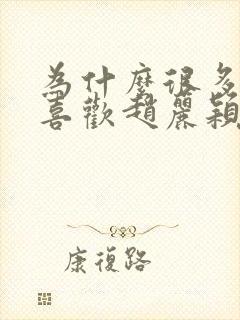 為什麼很多
喜歡趙麗穎
康復路